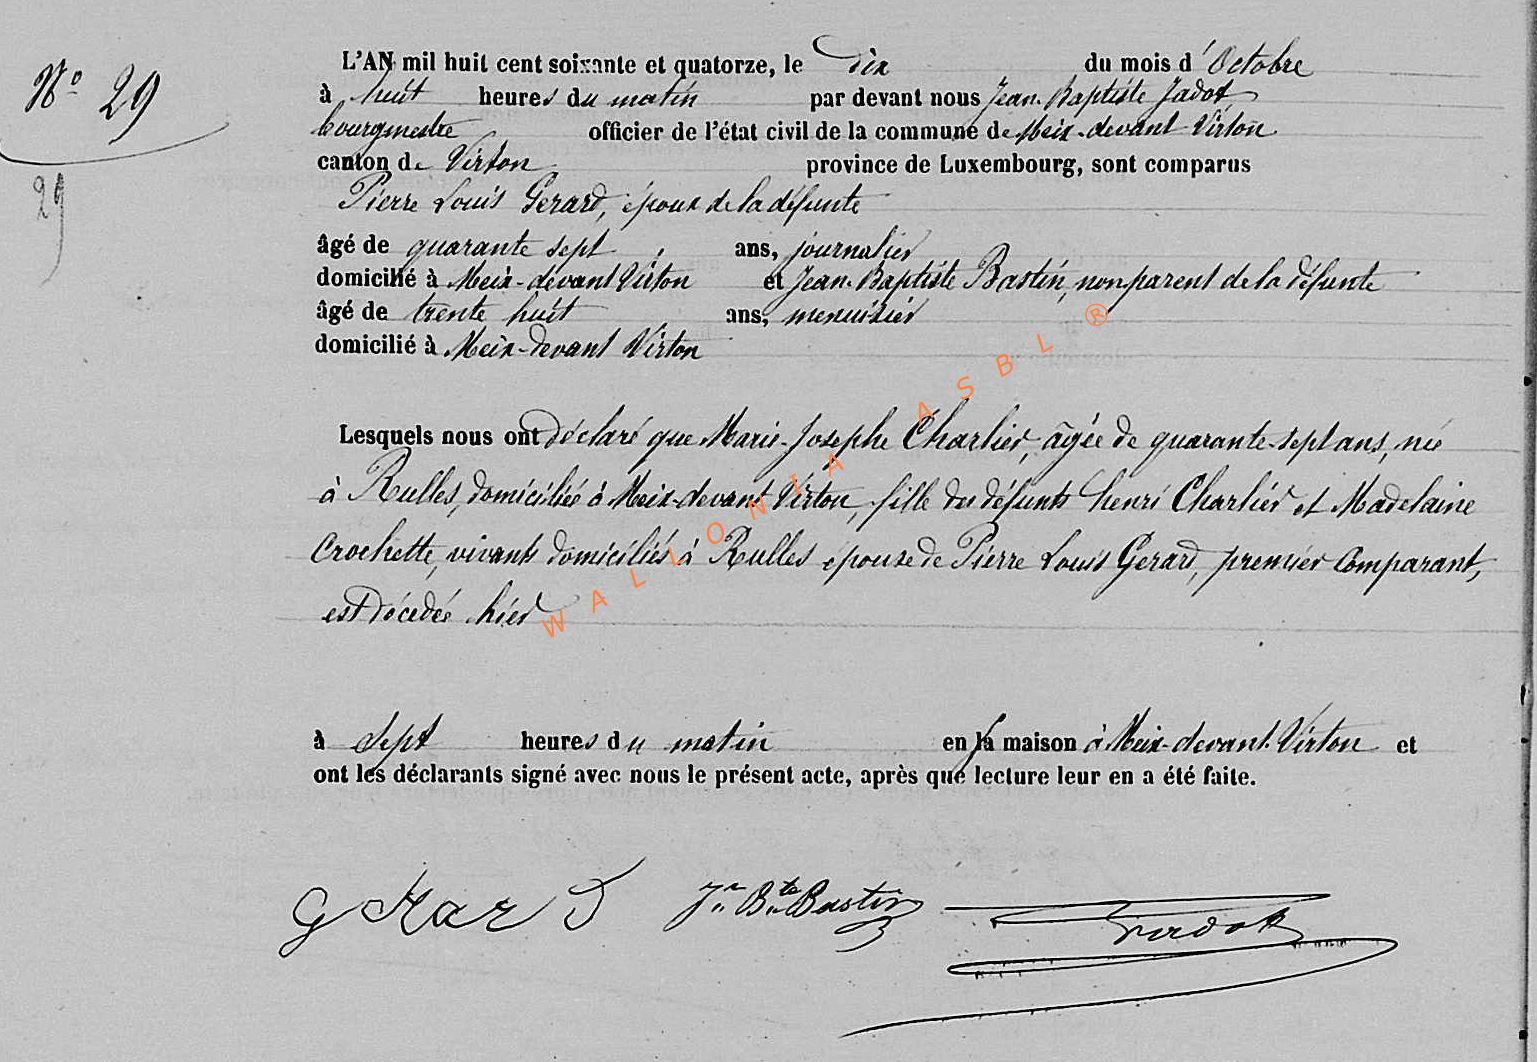 N° 29
29
L'AN mil huit cent soixante et quatorze, le dix du mois d'Octobre
à huit heures du matin par devant nous Jean-Baptiste Jadot
bourgmestre officier de l'état civil de la commune de Meix-devant Virton
canton de Virton province de Luxembourg, sont comparus
Pierre Louis Gerard, époux de la défunte
âgé de quarante sept ans, journalier
domicilié à Meix-devant Virton et Jean-Baptiste Bastin, non parent de la défunte
âgé de trente huit ans, menuisier
domicilié à Meix-devant Virton
Lesquels nous ont déclaré que Marie-Josephe Charlier, âgée de quarante-sept ans, née
à Rulles, domiciliée à Meix-devant Virton, fille des défunts henri Charlier et Madelaine
Crochette, vivants domiciliés à Rulles épouse de Pierre Louis Gerard, premier comparant,
est décédée hier
à sept heures du matin en sa maison à Meix-devant-Virton et
ont les déclarants signé avec nous le présent acte, après que lecture leur en a été faite.
GERARD Jn Bte Bastin Jadot
WALLONIA ASBL ®